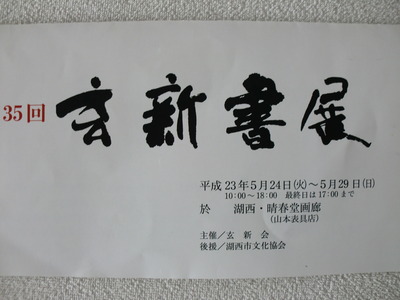 35回 玄新書展
平成23年5月24日(火)～5月29日(日)
10:00～18:00 最終日は17:00まで
於 湖西・晴春堂画廊
(山本表具店)
主催／玄新会
後援／湖西市文化協会